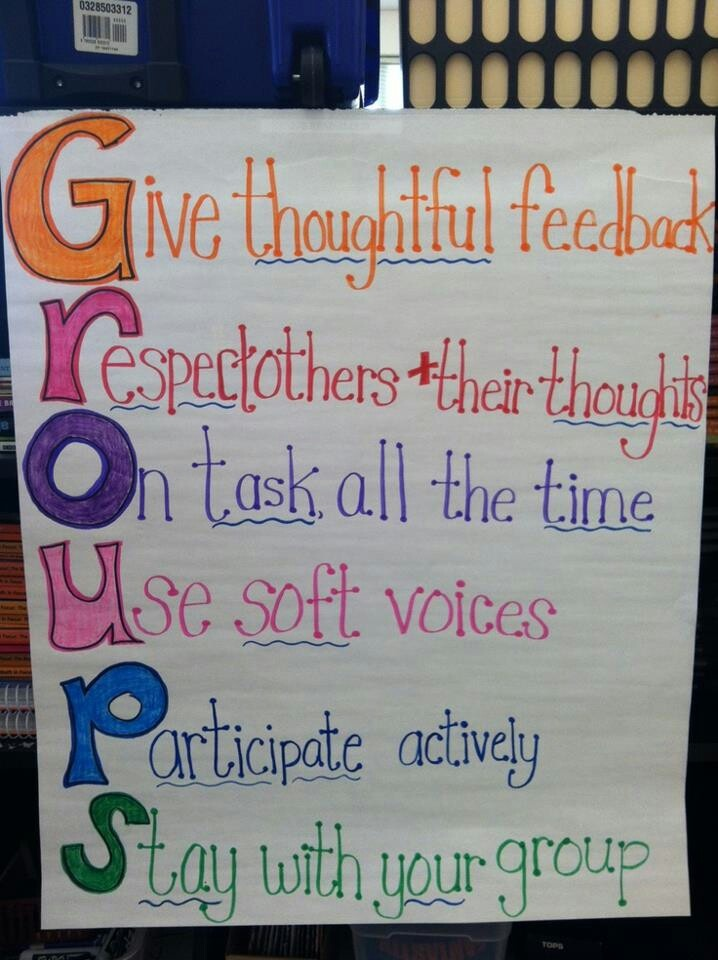 0328503312
Give thoughtful feedback
respect others + their thoughts
On task, all the time
use soft voices
Participate actively
Stay with your group
TOPS